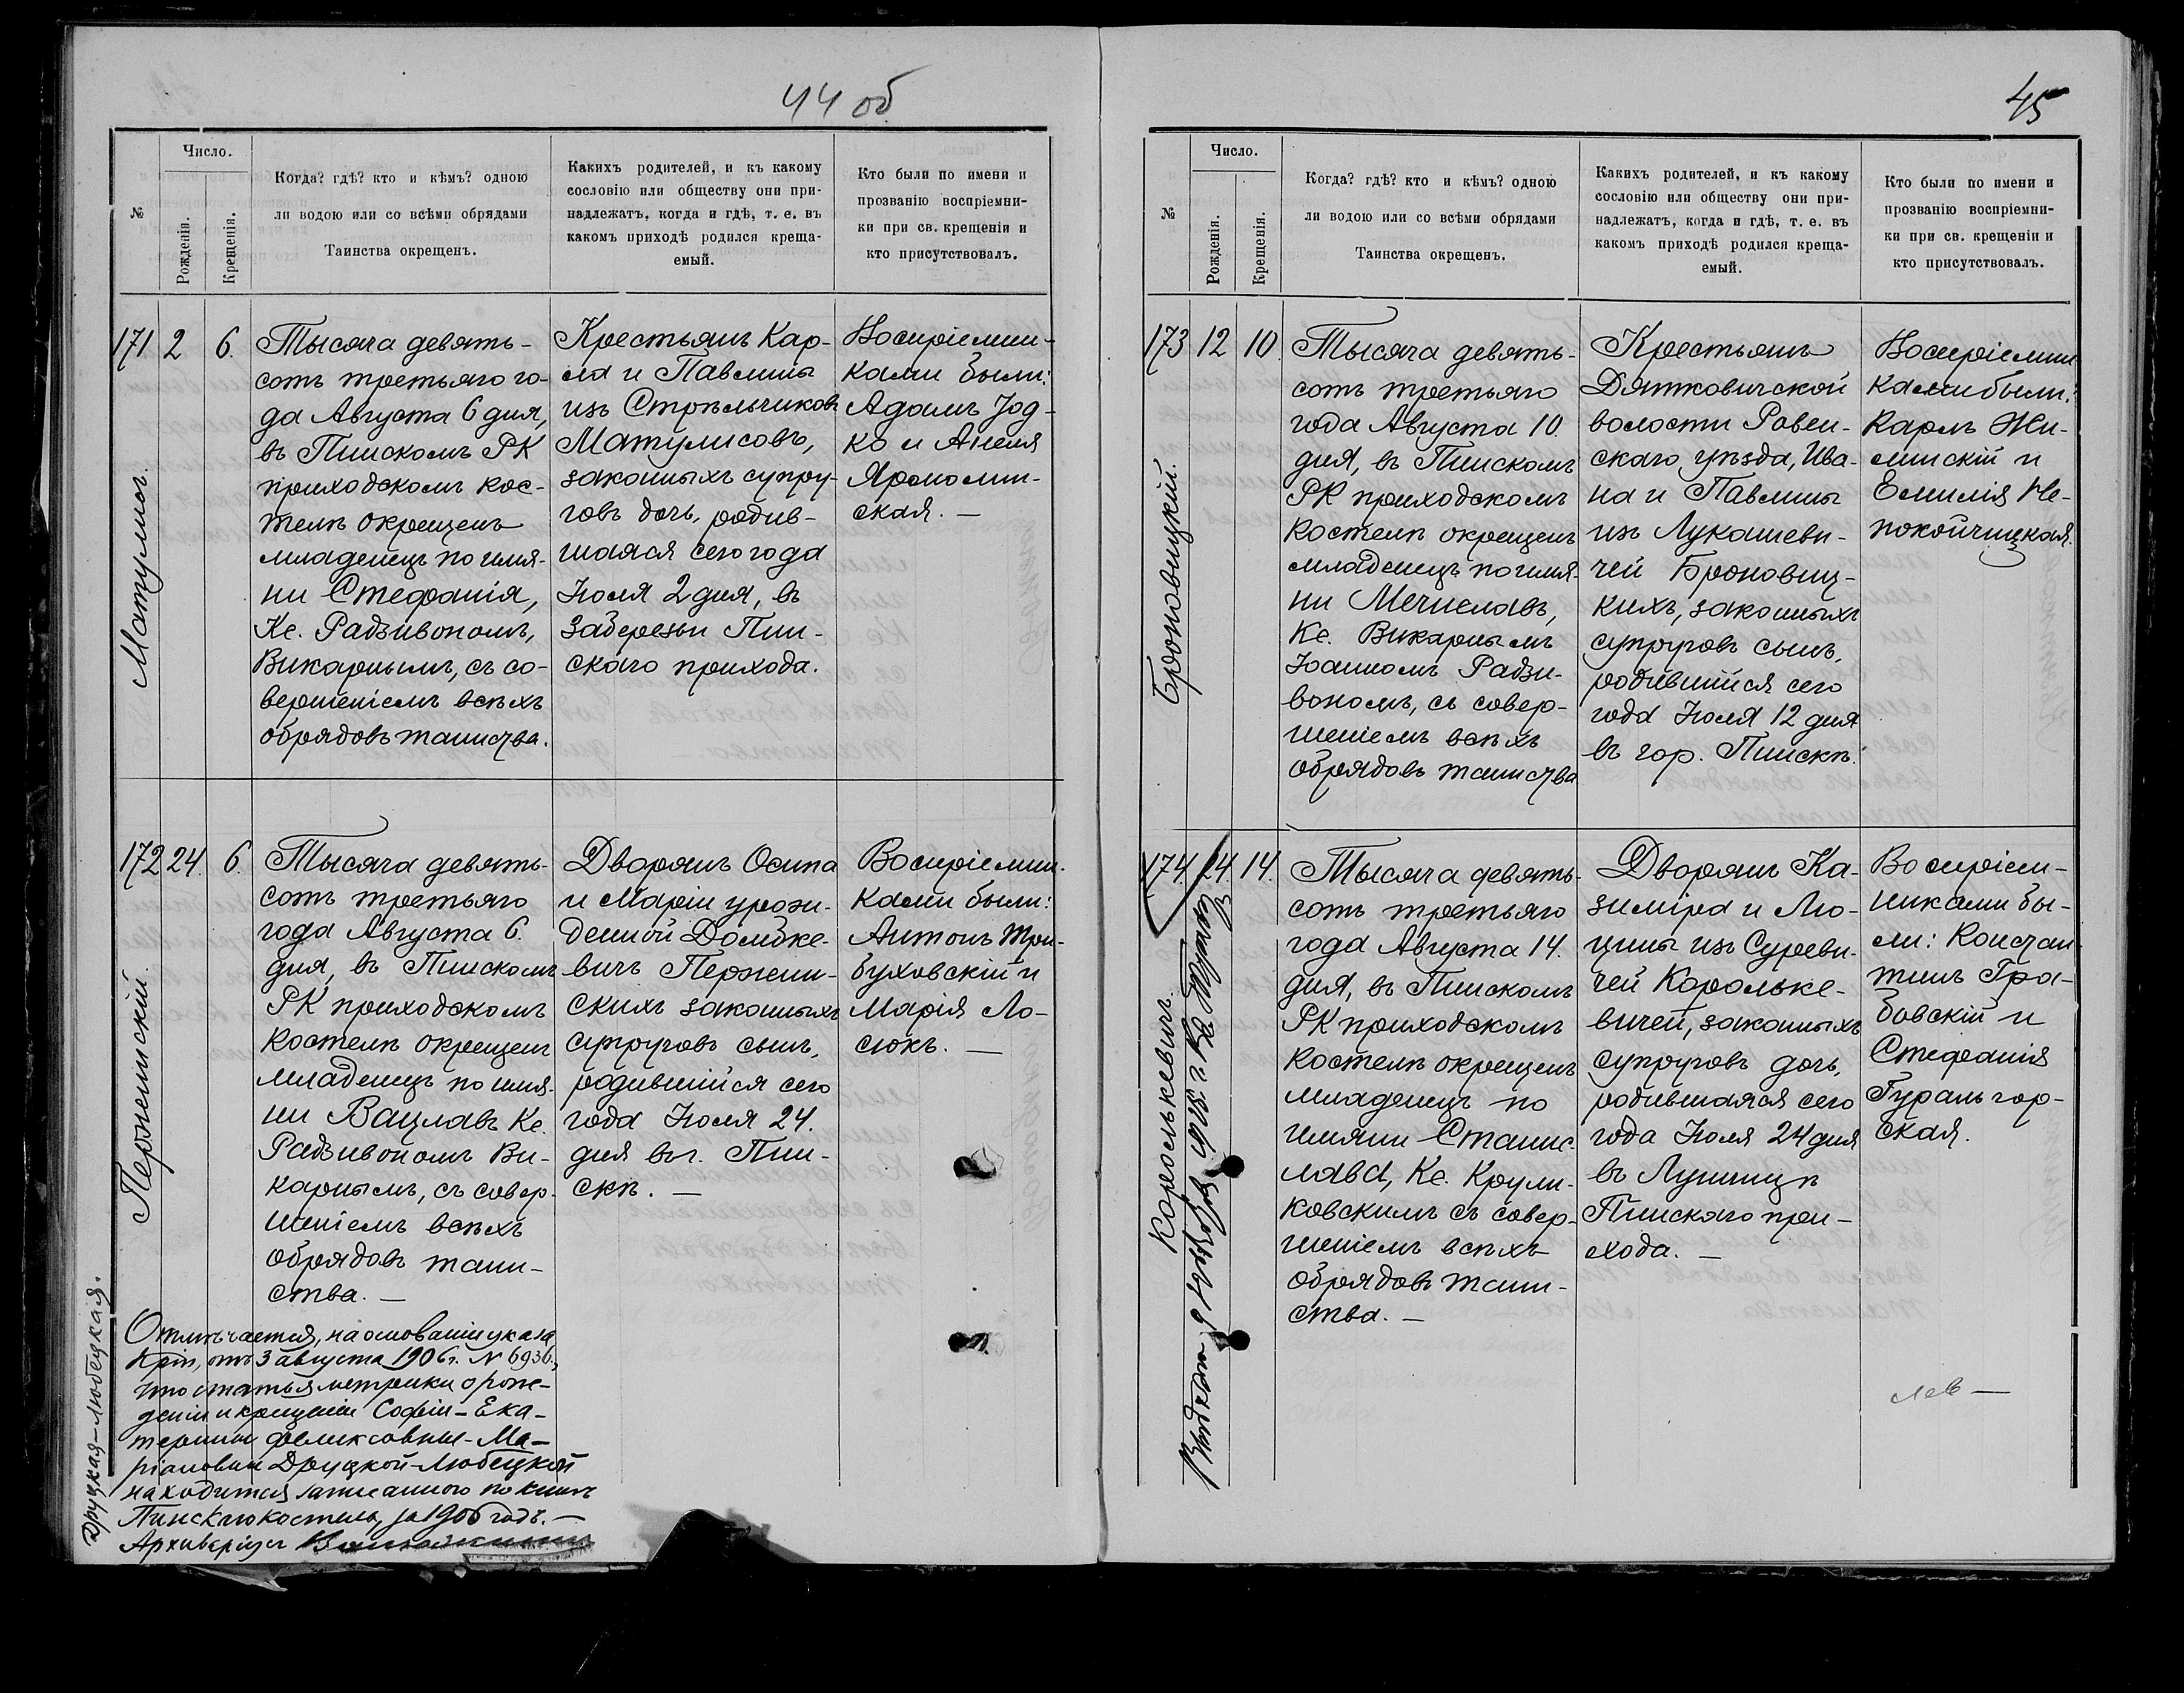 44 об
№
Число.
Рожденія.
Крещенія.
Когда? гдѣ? кто и кѣмъ? одною
ли водою или со всѣми обрядами
Таинства окрещенъ.
Какихъ родителей, и къ какому
сословію или обществу они при-
надлежатъ, когда и гдѣ, т. е. въ
какомъ приходѣ родился креща-
емый.
Кто были по имени и
прозванію воспріемни-
ки при св. крещеніи и
кто присутствовалъ.
171
2
6.
Матулисъ.
Тысяча девять-
сотъ третьяго го-
да Августа 6 дня,
въ Пинскомъ РК
приходскомъ кос-
телѣ окрещенъ
младенецъ по имя-
ни Стефанія,
Кс. Радзивономъ,
Викарнымъ, съ со-
вершеніемъ всѣхъ
обрядовъ таинства.
Крестьянъ Кар-
ла и Павлины
изъ Стрѣльчиковъ
Матулисовъ,
законныхъ супру-
говъ дочь, родив-
шаяся сего года
Іюля 2 дня, въ
Заберезьи Пин-
скаго прихода.
Воспріемни-
ками были:
Адамъ Іод-
ко и Анеля
Яронолин-
ская. —
172
24.
6.
Перженскій.
Тысяча девять-
сотъ третьяго
года Августа 6.
дня, въ Пинскомъ
РК приходскомъ
костелѣ окрещенъ
младенецъ по имя-
ни Вацлавъ Кс.
Радзивономъ Ви-
карнымъ, съ совер-
шеніемъ всѣхъ
обрядовъ таин-
ства. —
Дворянъ Осипа
и Маріи урож-
денной Домбке-
вичъ Пержен-
скихъ законныхъ
супруговъ сынъ,
родившійся сего
года Іюля 24.
дня въ г. Пин-
скѣ. —
Воспріемни-
ками были:
Антонъ Три-
буховскій и
Марія Ло-
сюкъ. —
Друцкая-Любецкая.
Отмѣчается, на основаніи указа
Крік, отъ 3 августа 1906 г. № 6936,
что статья метрики о рож-
деніи и крещеніи Софіи-Ека-
терины Феликсовны-Ма-
ріановны Друцкой-Любецкой
находится записанною по книгѣ
Пинскаго костела, за 1906 годъ. —
Архиваріусъ
45
№
Число.
Рожденія.
Крещенія.
Когда? гдѣ? кто и кѣмъ? одною
ли водою или со всѣми обрядами
Таинства окрещенъ.
Какихъ родителей, и къ какому
сословію или обществу они при-
надлежатъ, когда и гдѣ, т. е. въ
какомъ приходѣ родился креща-
емый.
Кто были по имени и
прозванію воспріемни-
ки при св. крещеніи и
кто присутствовалъ.
173
12
10.
Броновицкій.
Тысяча девять-
сотъ третьяго
года Августа 10.
дня, въ Пинскомъ
РК приходскомъ
костелѣ окрещенъ
младенецъ по имя-
ни Мечиславъ,
Кс. Викарнымъ
Іоанномъ Радзи-
вономъ, съ совер-
шеніемъ всѣхъ
обрядовъ таинства
Крестьянъ
Дятковичской
волости Ровен-
скаго уѣзда, Ива-
на и Павлины
изъ Лукашеви-
чей Броновиц-
кихъ, законныхъ
супруговъ сынъ,
родившійся сего
года Іюля 12 дня
въ гор. Пинскѣ.
Воспріемни
ками были:
Карлъ Жи-
линскій и
Емилія Не-
покойчицкая.
174
24.
14.
Королькевичъ.
Тысяча девять-
сотъ третьяго
года Августа 14.
дня, въ Пинскомъ
РК приходскомъ
костелѣ окрещенъ
младенецъ по
имяни Станис-
лава, Кс. Крули-
ковскимъ съ совер-
шеніемъ всѣхъ
обрядовъ таин-
ства. —
Дворянъ Ка-
зиміра и Лю-
цины изъ Суреви-
чей Королькe-
вичей, законныхъ
супруговъ дочь,
родившаяся сего
года Іюля 24 дня
въ Лунинцѣ
Пинскаго при-
хода. —
Воспріем-
никами бы-
ли: Констан-
тинъ Гра-
бовскій и
Стефанія
Гуральгор-
ская.